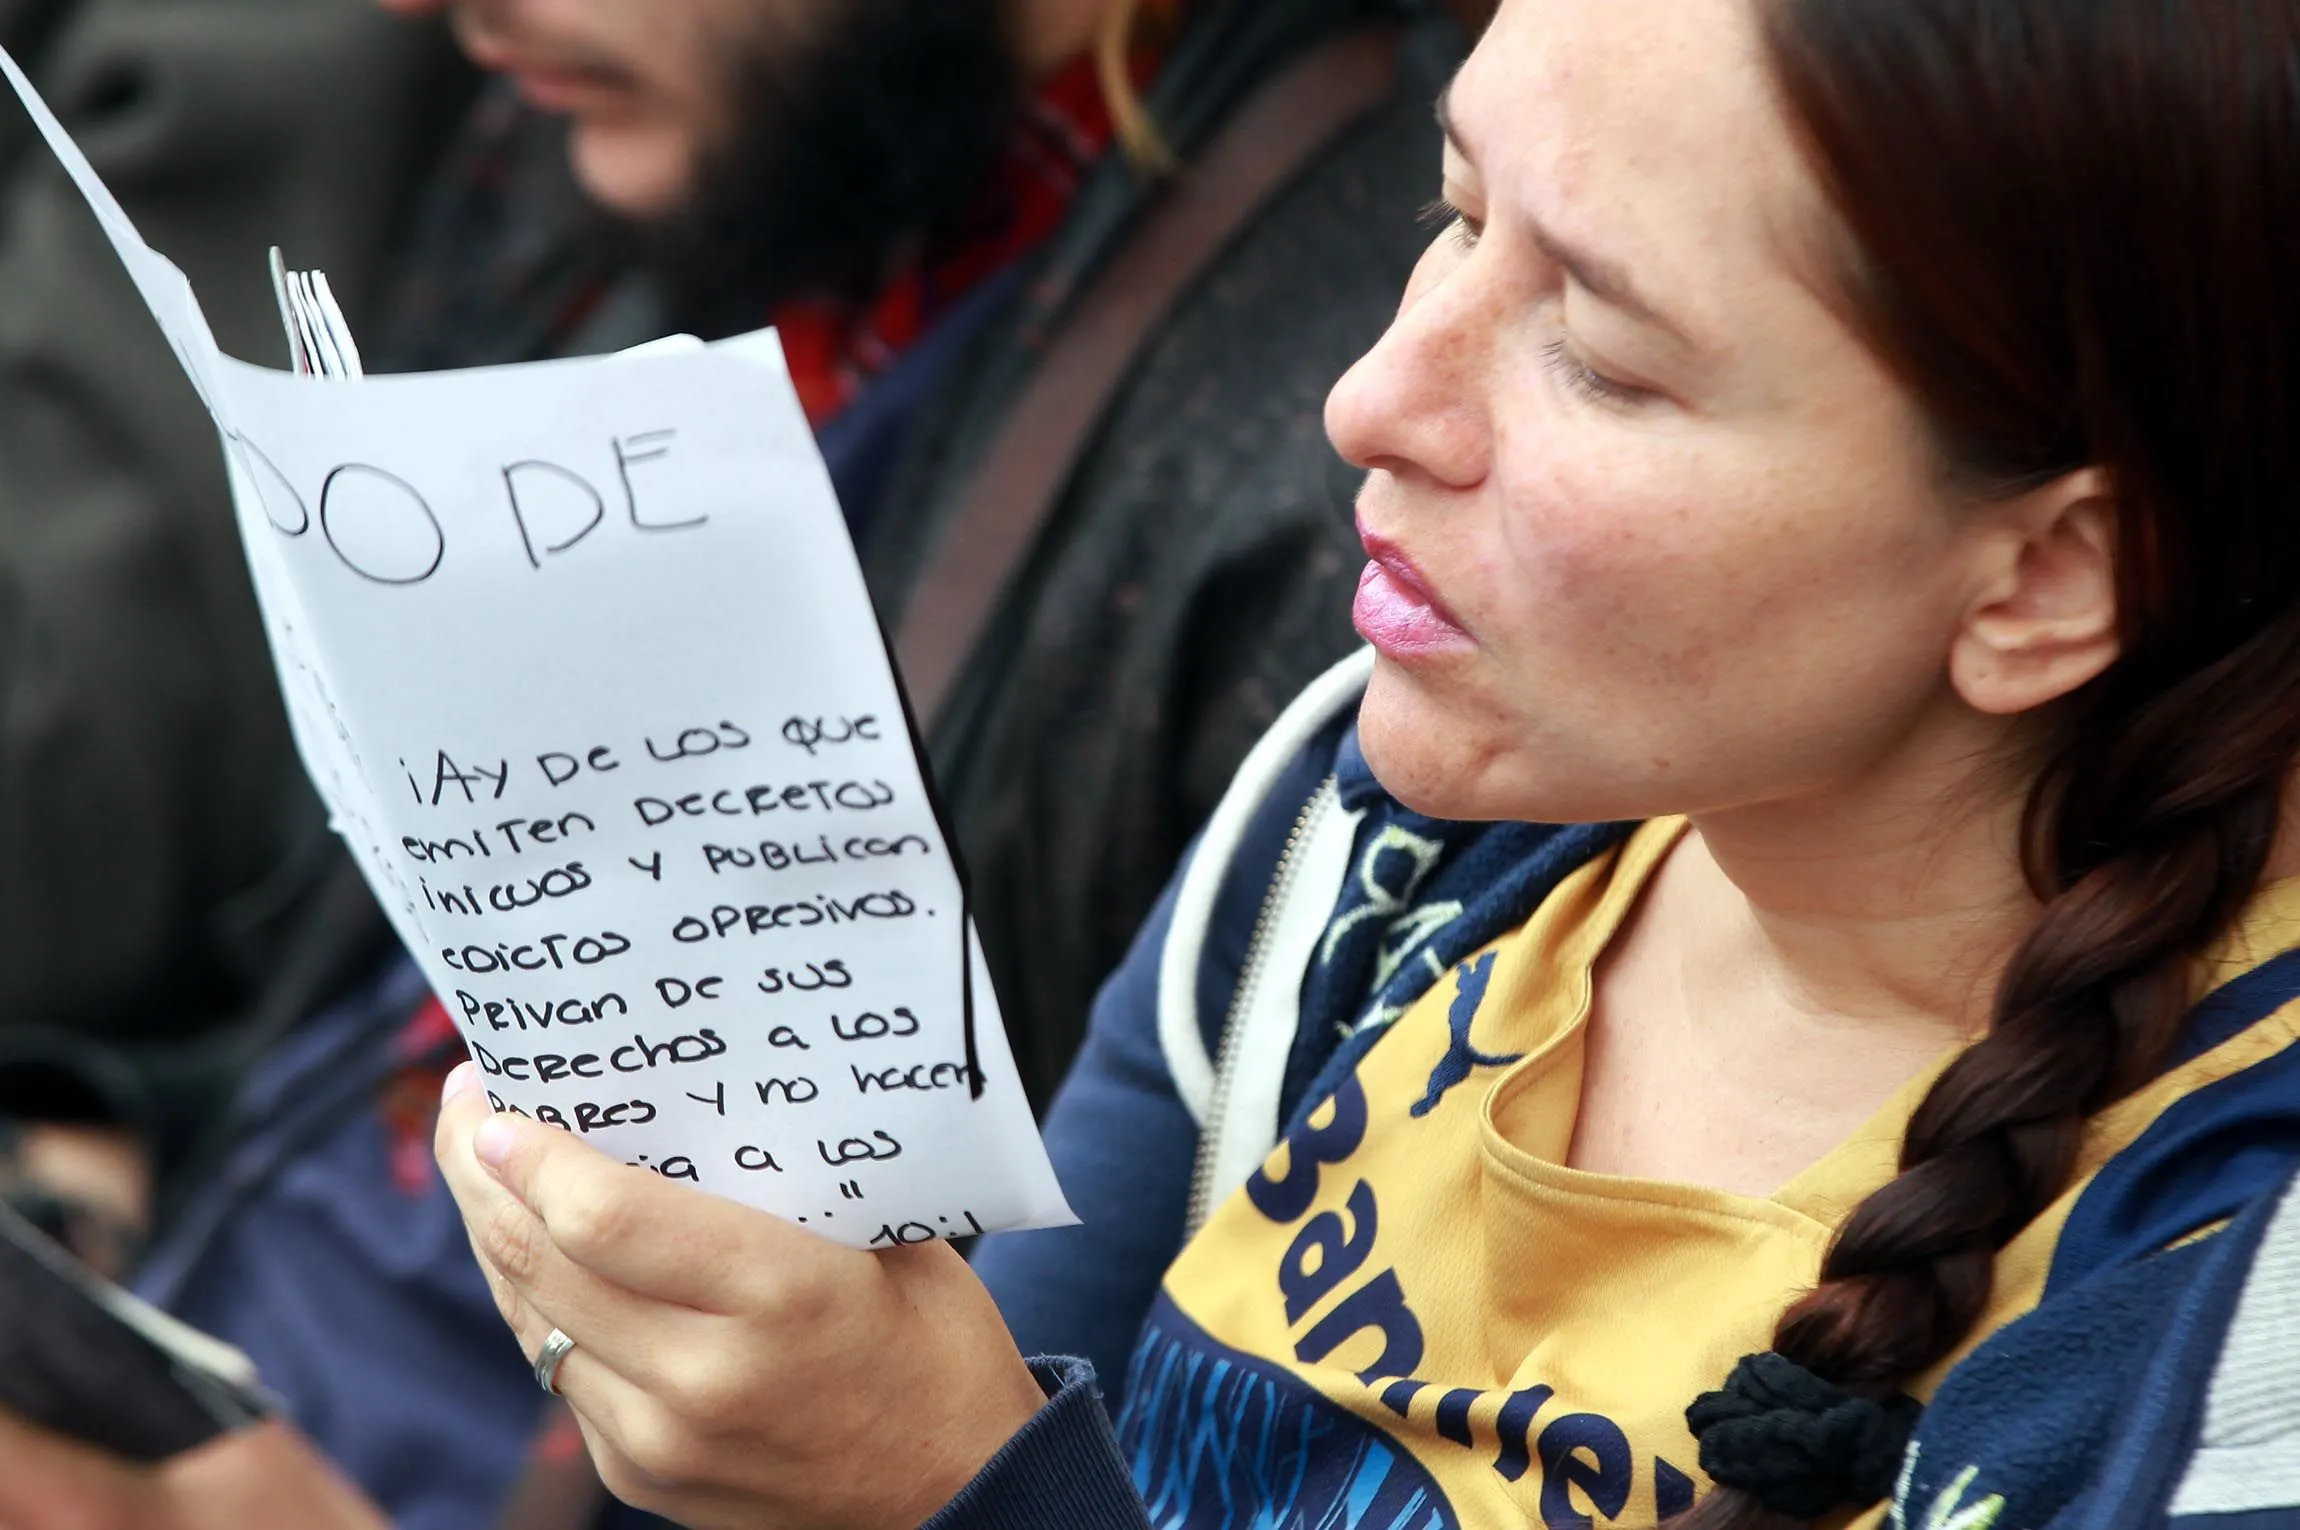 DO DE
¡Ay DE LOS QUE
emiTen DECRETOS
iniCUOS Y PUBLICan
EDICTOS OPRESIVOS.
PRIVan DE SUS
DERECHOS a LOS
POBRES Y no hacen
a LOS
"
10:1
Banmé